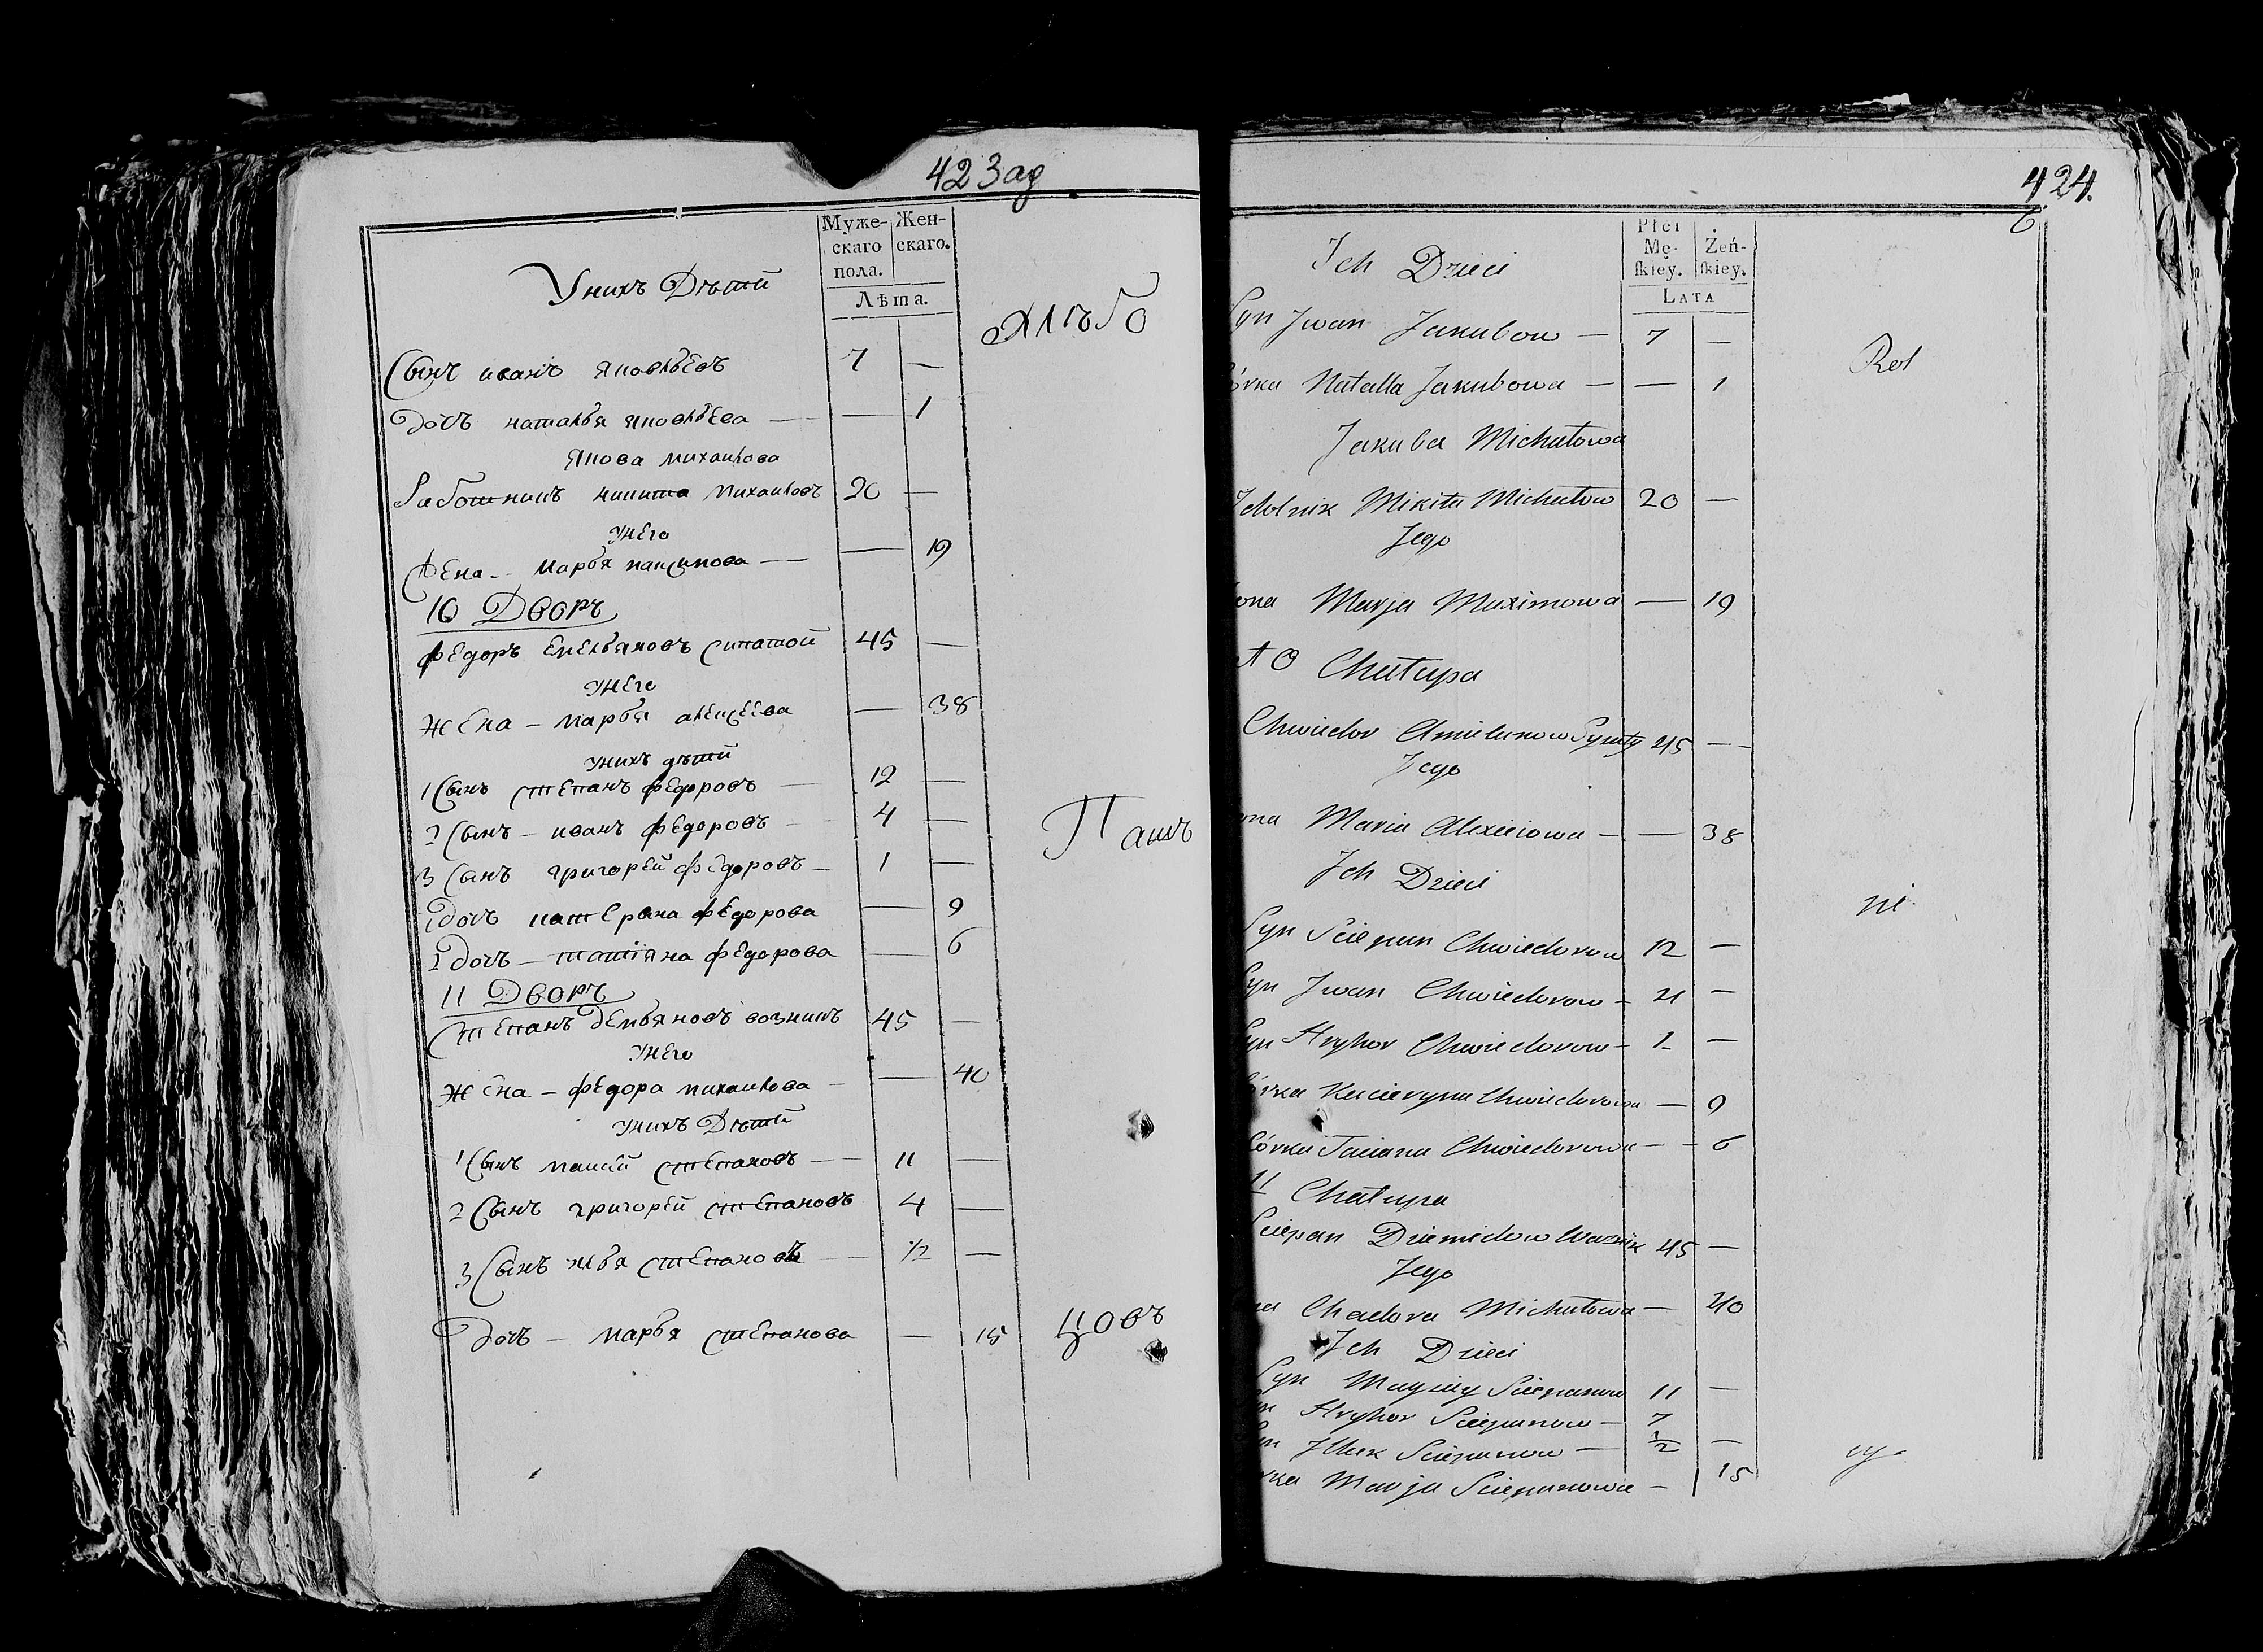 423 ад
Муже-
скаго
пола.
Жен-
скаго.
Лѣта.
Унихъ Дѣти
Хлѣбо
Сынъ иванъ яковлѣвъ 7 —
Дочъ наталья яковлѣва — 1
Якова михаилова
Работникъ никита Михаиловъ 20 —
Унего
Жена — Марья максимова — 19
10 Дворъ
Федоръ Емельяновъ сипатой 45 —
Унего
Жена — марья алексеева — 38
Унихъ дѣти
1 Сынъ степанъ федоровъ 12 —
2 Сынъ — иванъ федоровъ 4 —
Пашъ
3 Сынъ григорей федоровъ — 1 —
1 дочъ катерына федорова — 9
2 дочъ — татіяна федорова — 6
11 Дворъ
Степанъ демьяновъ возникъ 45 —
Унего
Жена — федора михаилова — 40
Унихъ Дѣти
1 Сынъ максей степановъ 11 —
2 Сынъ григорей степановъ 4 —
3 Сынъ илья степановъ 1/2 —
Дочъ — марья степанова — 15
цовъ
424.
6
Płci
Mę-
skiey.
Żeń-
skiey.
Lata
Ich Dzieci
Syn Jwan Jakubow — 7 —
Rol
órka Natalla Jakubowa — — 1
Jakuba Michałowa
Mikita Michałow 20 —
Jego
ona Marja Maximowa — 19
10 Chałupa
Chwiedor Amielanow Sypaty 45 —
Jego
ona Maria Alexieiowa — — 38
Ich Dzieci
ni
Syn Sciepan Chwiedorow 12 —
Syn Jwan Chwiedorow — 4 —
Syn Hryhor Chwiedorow — 1 —
órka Kacieryna Chwiedorowa — 9
Córka Taciana Chwiedorowa — — 6
11 Chałupa
Sciepan Dziemidow Waznik 45 —
Jego
na Chadora Michałowa — 40
Ich Dzieci
Syn Maysiey Sciepanow 11 —
yn Hryhor Sciepanow — 7
yn Jllak Sciepanow — 1/2 —
cy.
rka Marja Sciepanowa — 15